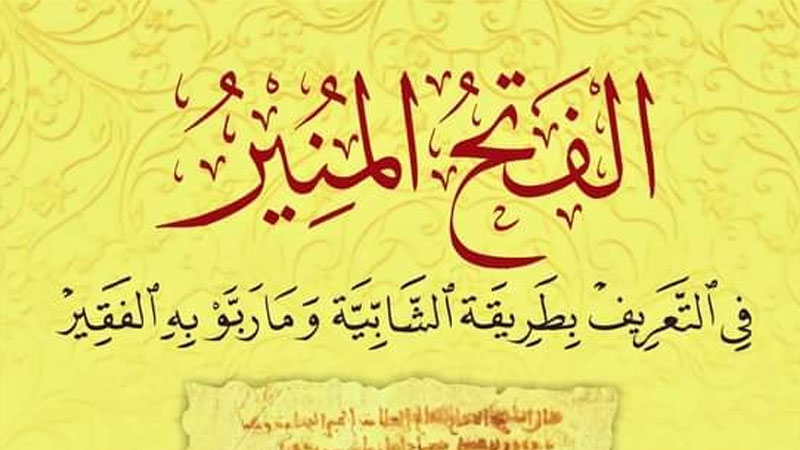 الفَتْحُ المُنِيرُ
فِي التَّعَرِيفْ بِطَرِيقَة الشَّابِّيَّة وَمَا رَبَّوْ بِهِ الفَقِيرْ